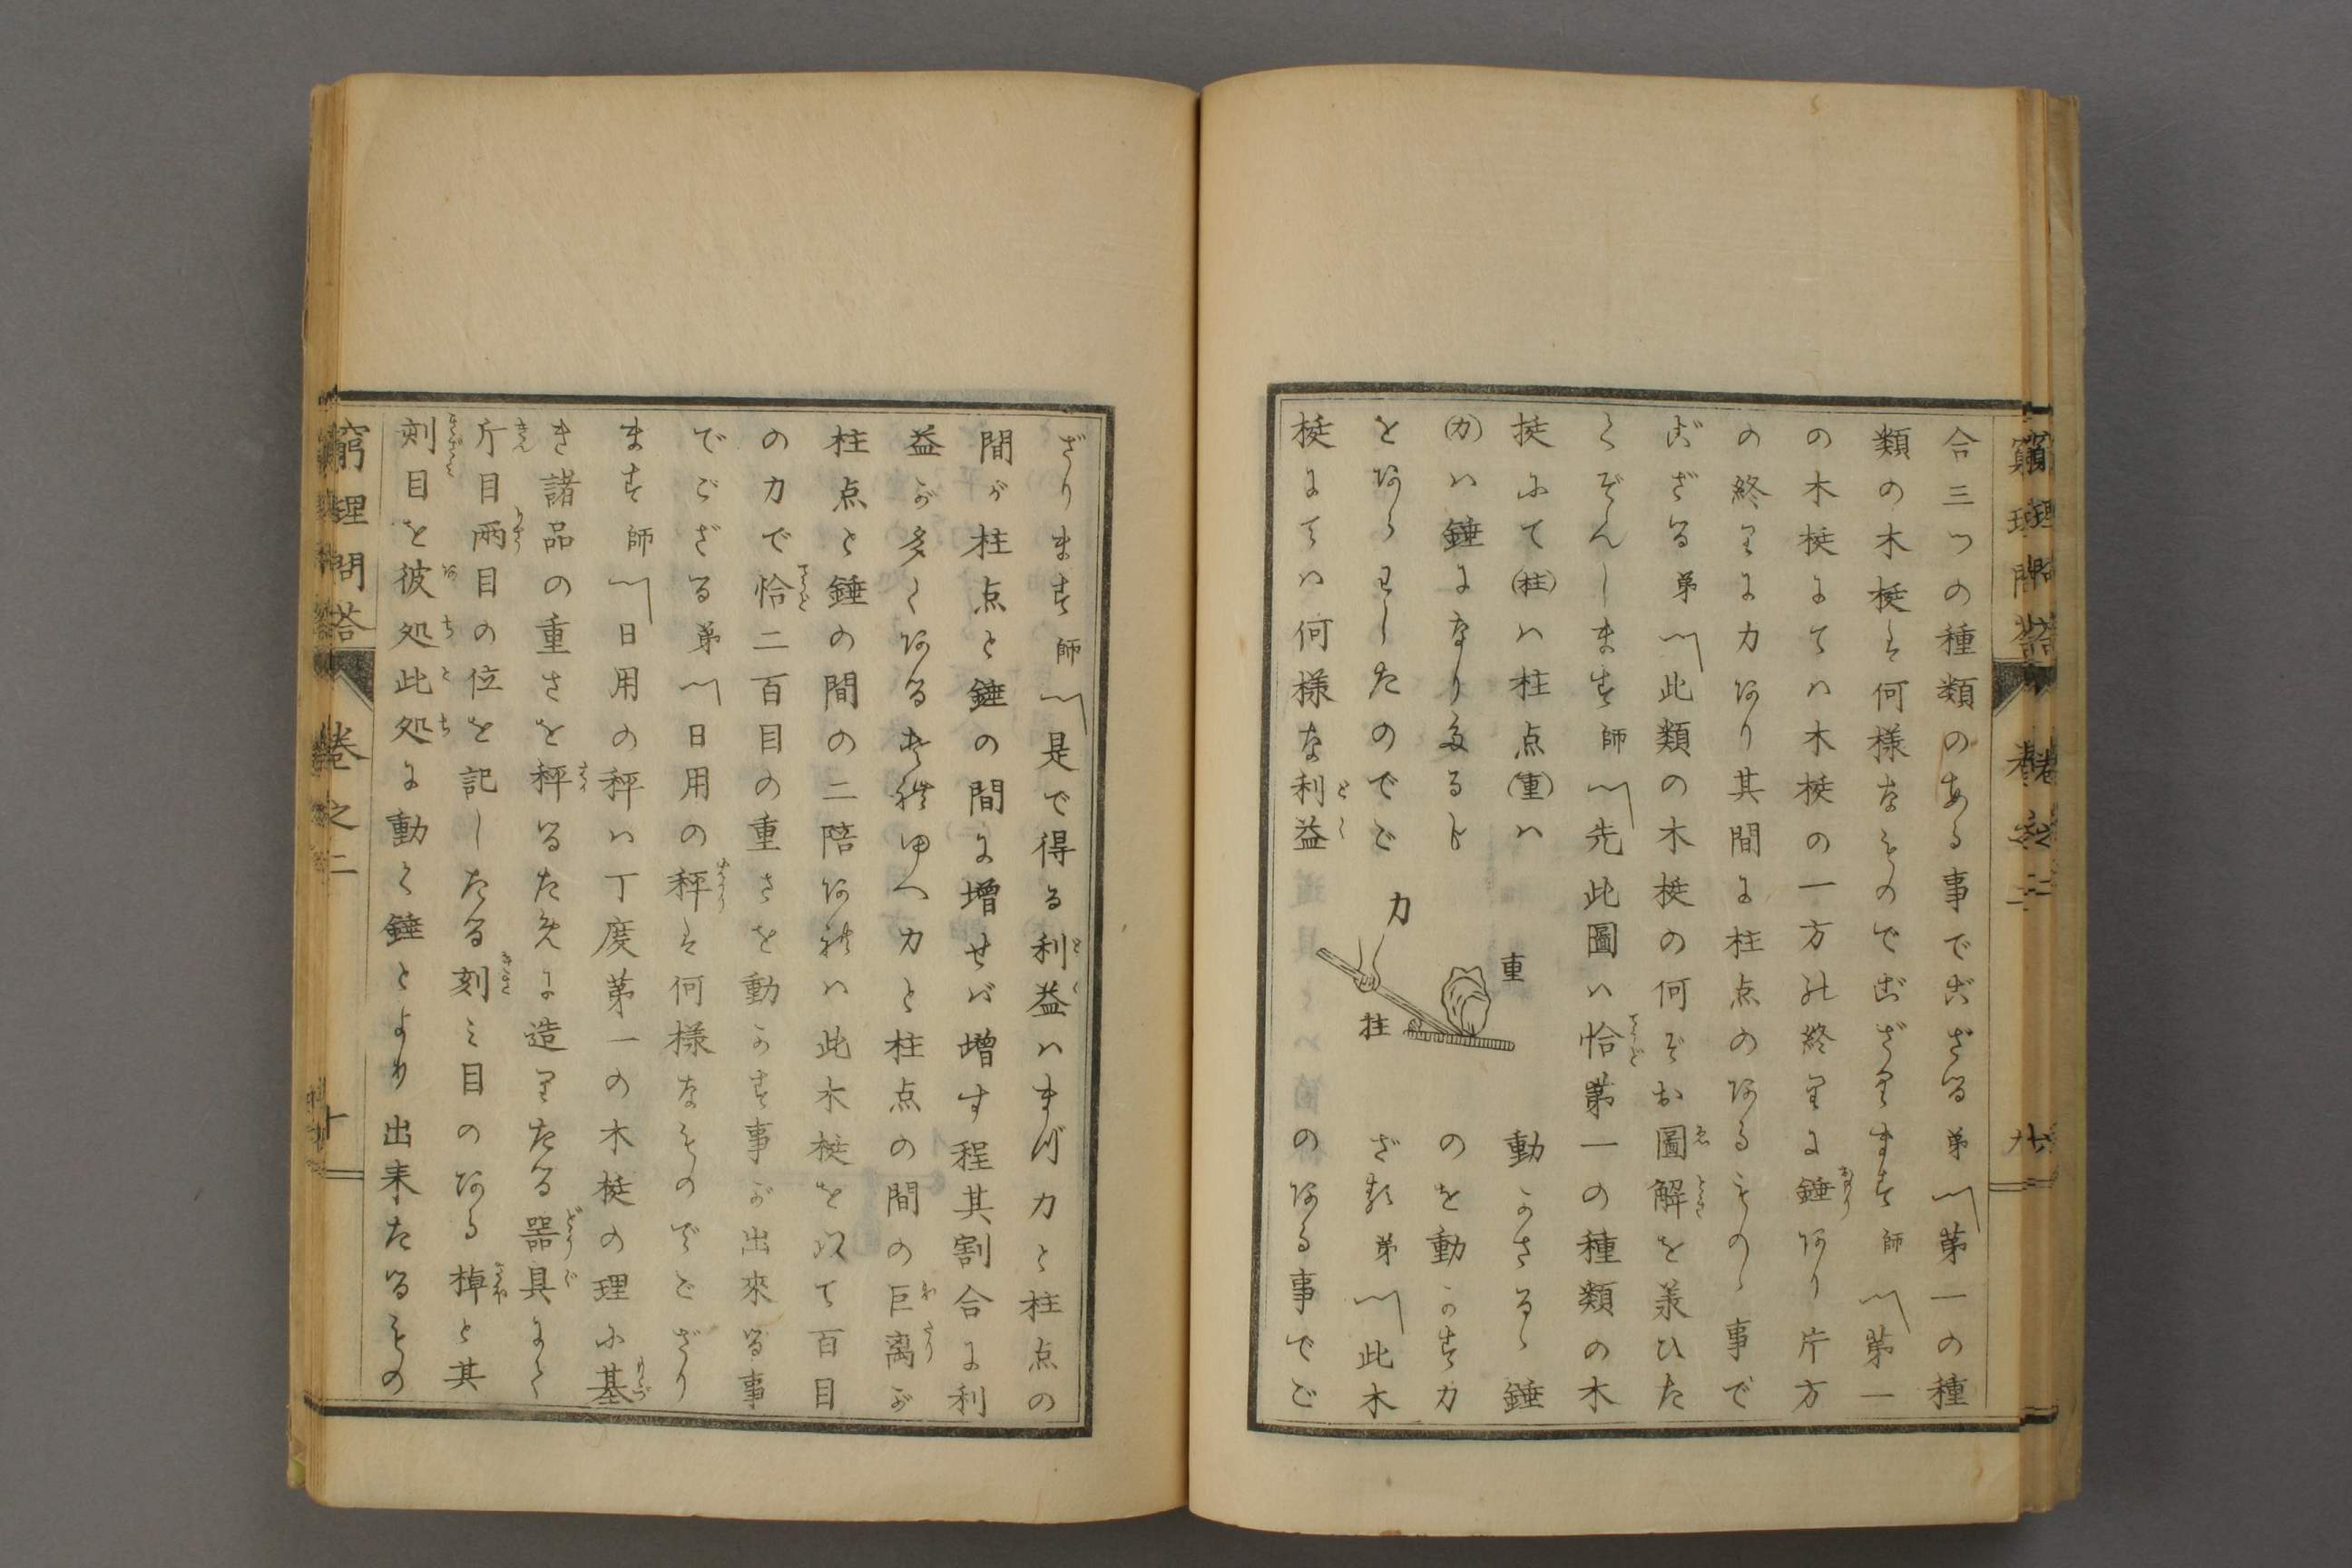 合三つの種類のある事でござる弟第一の種
類の木梃は何様なものでござります師第一
の木梃にては木梃の一方の終りに錘あり片方
の終りに力あり其間に柱点のあるものゝ事で
ござる弟此類の木梃の何ぞお圖解を蒙ひた
くぞんします師先此圖は恰第一の種類の木
梃にて(柱)は柱点(重)は動かさるゝ錘
(力)は錘になり多るものを動かす力
をあらわしたのでござる弟此木
梃にては何様な利益のある事でご
力
重
柱
ざります師是で得る利益はまづ力と柱点の
間が柱点と錘の間に増せば増す程其割合に利
益が多くある其ゆへ力と柱点の間の巨離が
柱点と錘の間の二陪あれは此木梃を以て百目
の力で恰二百目の重さを動かす事が出來る事
でござる弟日用の秤は何様なものでござり
ます師日用の秤は丁度第一の木梃の理に基
き諸品の重さを秤るために造りたる器具にて
斤目両目の位を記したる刻み目のある棹と其
刻目を彼処此処に動く錘とより出来たるもの
窮理問答 卷之二 十